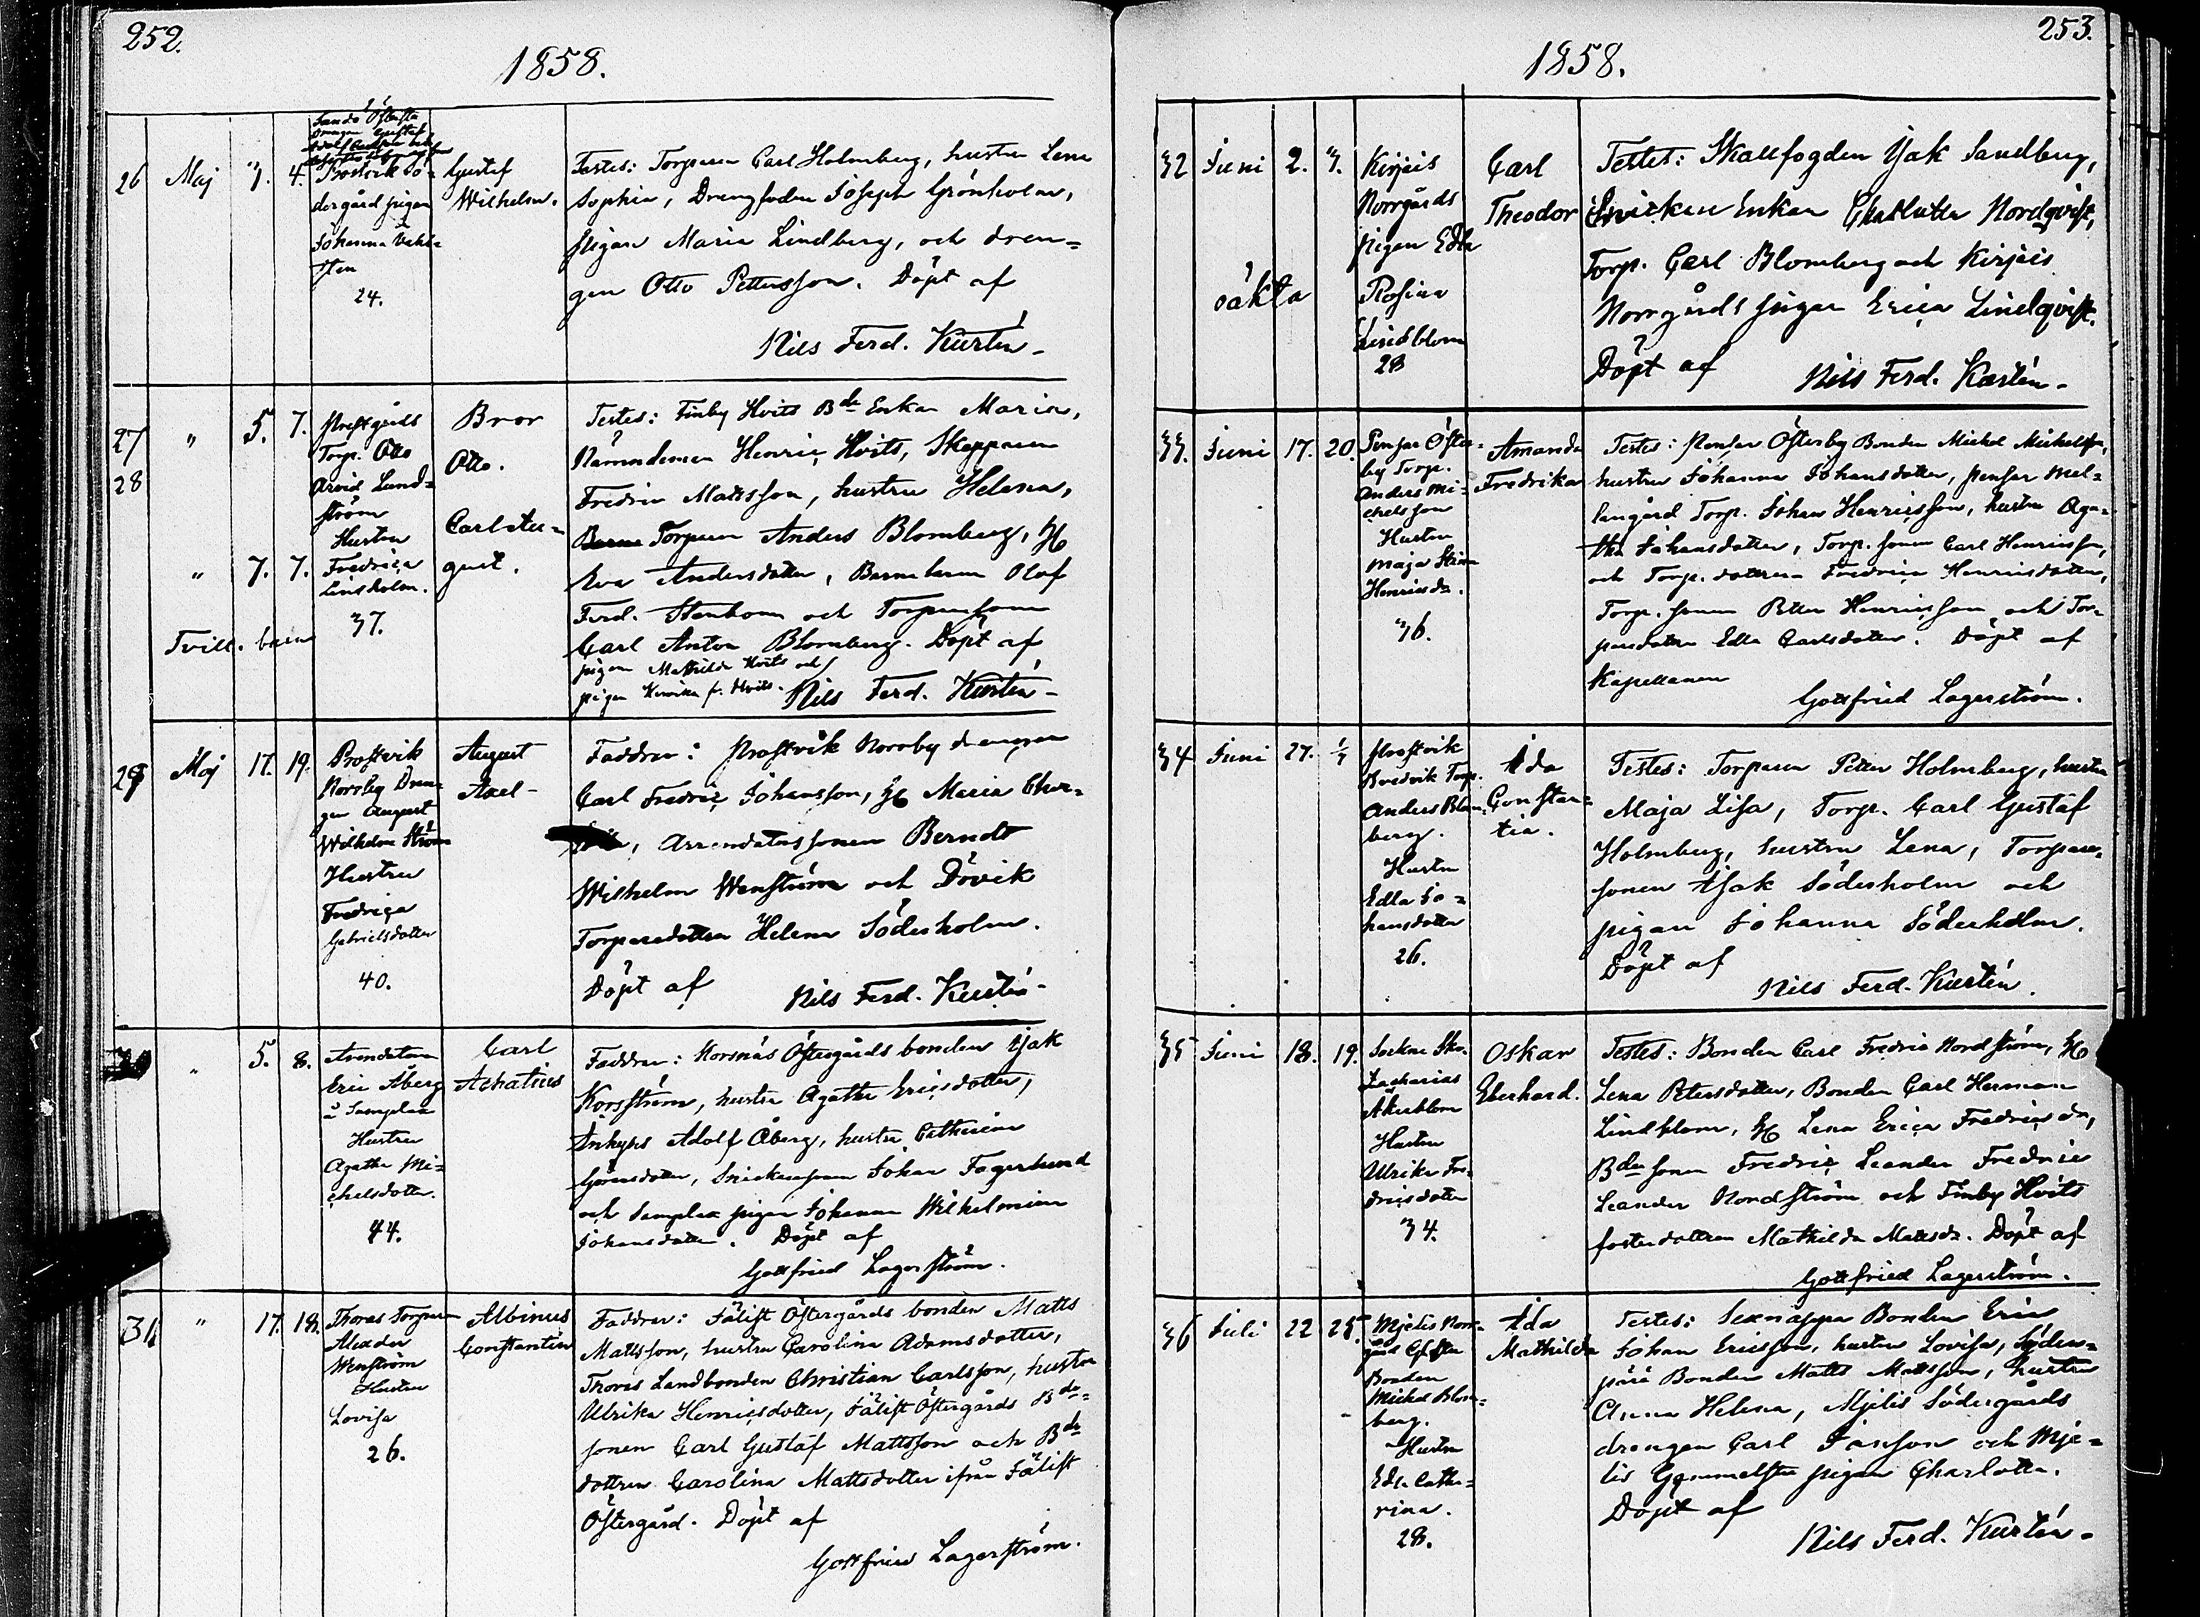 252.
1858.
26 Maj 3. 4.
Prostvik Sö-
dergård pigan
Johanna
24.
Gustaf
Wilhelm.
Testes: Torparen Carl Holmberg, hustru Lena
Sophia, Drengfodm Joseph Grönholm,
pigan Maria Lindberg, och dren-
gen Otto Pettersson. Döpt af
Nils Ferd. Kurtén
27 " 5. 7.
28
" 7. 7.
Tvill. barn
Prestgårds
Torp. Otto
Arvid Lund-
ström
Hustru
Fredrica
Lindholm.
37.
Bror
Otto.
Carl Au-
gust.
Testes: Finby Hvits Bde Enkan Maria,
Nämndeman Henric Hvits, Skepparen
Fredric Mattsson, hustru Helena,
Torparen Anders Blomberg, H
Eva Andersdotter, Olof
Ferd. Stenbom och Torparesonen
Carl Anton Blomberg. Döpt af
pigan Mathilda Hvits och
pigan fr. Hvits. Nils Ferd. Kurtén
29 Maj 17. 19.
Prostvik
Norrby Dren-
gen August
Wilhelm Ström
Hustru
Fredrica
Gabrielsdotter
40.
August
Axel
Faddrar: Prostvik Norrby drengen
Carl Fredric Johansson, H Maria
Arrendatorssonen Berndt
Wilhelm Wenström och Dövik
Torparedottren Helena Söderholm.
Döpt af Nils Ferd. Kurtén
30 " 5. 8.
Arendatorn
Eric Åberg
å Simplax
Hustru
Agatha Mi-
chelsdotter.
44.
Carl
Achatius
Faddrar: Korsnäs Östergårds bonden Isak
Korsström, hustru Agatha Ericsdotter,
Adolf Åberg, hustru Catharina
Göransdotter, Snickaresonen Johan Fagerlund
och Simplax pigan Johanna Wilhelmina
Johansdotter. Döpt af
Gottfried Lagerström.
31 " 17. 18.
Thoras Torparen
Alexander
Wenström
Hustru
Lovisa
26.
Albinus
Constantin
Faddrar: Fälist Östergårds bonden Matts
Mattsson, hustru Carolina Adamsdotter,
Thoras Landbonden Christian Carlsson, hustru
Ulrika Henricsdotter, Fälist Östergårds Bde-
sonen Carl Gustaf Mattsson och Bde
dottren Carolina Mattsdotter ifrån Fälist
Östergård. Döpt af
Gottfried Lagerström.
253.
1858.
32 Juni 2. 3.
oäkta
Kirjais
Norrgårds
pigan Edla
Rosina
Lindblom
28
Carl
Theodor
Testes: Skallfogden Isak Sandberg,
Enkan Charlotta Nordqvist,
Torp. Carl Blomberg och Kirjais
Norrgårds pigan Erica Lindqvist.
Döpt af Nils Ferd. Kurtén
33. Juni 17. 20.
Pensar Öster-
by Torp.
Anders Mi-
chelsson
Hustru
Maja Stina
Henricsdr.
36.
Amanda
Fredrika
Testes: Pensar Österby Bonden Michel Michelsson,
hustru Johanna Johansdotter, Pensar Mel-
langård Torp. Johan Henricsson, hustru Aga-
tha Johansdotter, Torp. sonen Carl Henricsson,
och Torp. dottren Fredrica Henricsdotter,
Torp. sonen Petter Henricsson och Tor-
paredottren Edla Carlsdotter. Döpt af
Kapellanen
Gottfried Lagerström.
34 Juni 27. 1/7
Prostvik
Bredvik Torp.
Anders Blom-
berg.
Hustru
Edla Jo-
hansdotter
26.
Ida
Constan-
tia.
Testes: Torparen Petter Holmberg, hustru
Maja Lisa, Torp. Carl Gustaf
Holmberg, hustru Lena, Torpare-
sonen Isak Söderholm och
pigan Johanna Söderholm.
Döpt af
Nils Ferd. Kurtén.
35 Juni 18. 19.
Sockne Sko.
Zacharias
Åkerblom
Hustru
Ulrika Fre-
dricsdotter
34.
Oskar
Eberhard.
Testes: Bonden Carl Fredric Nordström, H
Lena Petersdotter, Bonden Carl Herman
Lindblom, H Lena Erica Fredricsdr,
Bde sonen Fredric Leander Fredric
Leander Nordström och Finby Hvits
fosterdottren Mathilda Mattsdr. Döpt af
Gottfried Lagerström.
36 Juli 22 25.
Mjelis Norr-
gård
Bonden
Michel Blom-
berg.
Hustru
Edla Catha-
rina.
28.
Ida
Mathilda
Testes: Sexnappa Bonden Eric
Johan Ericsson, hustru Lovisa, Söder-
pää Bonden Matts Mattsson, hustru
Anna Helena, Mjelis Södergårds
drengen Carl Janson och Mje-
lis Gammelsta pigan Charlotta.
Döpt af
Nils Ferd. Kurtén